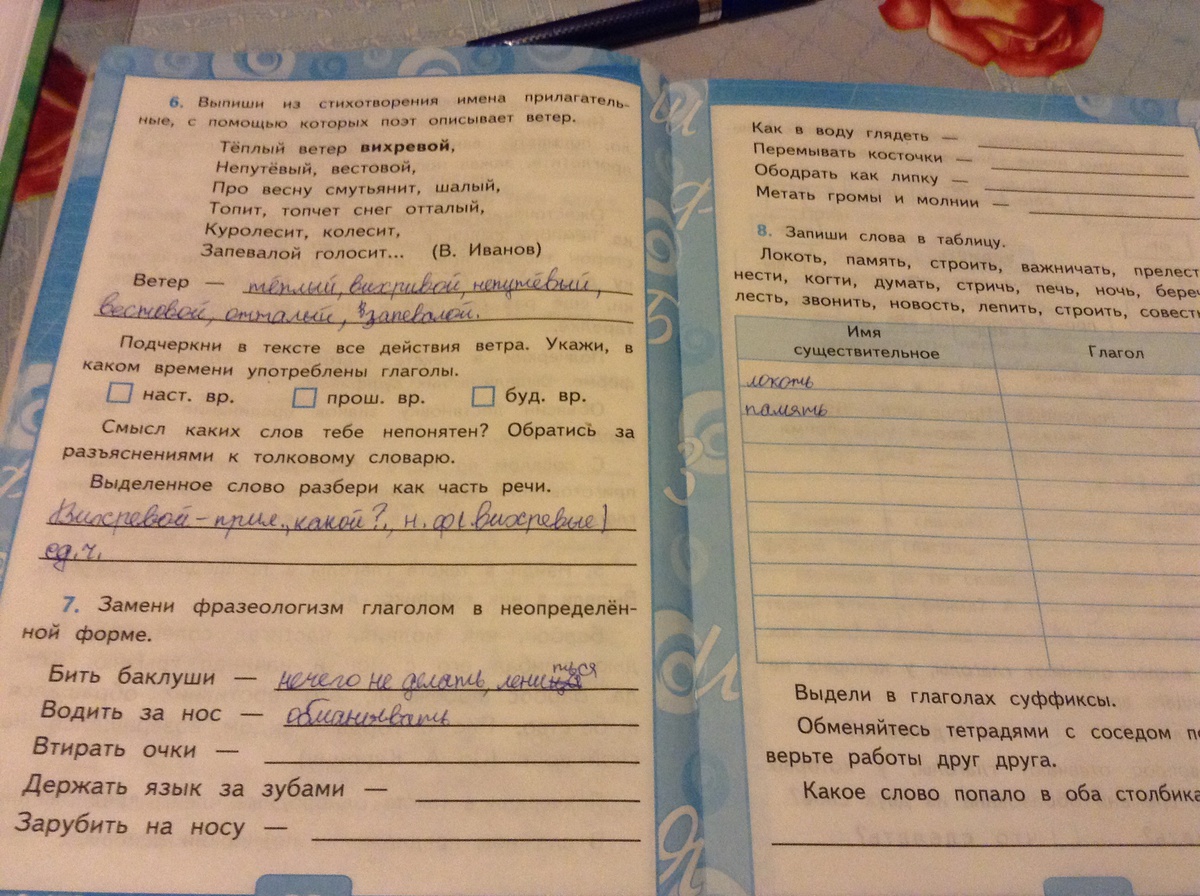 6. Выпиши из стихотворения имена прилагатель-
ные, с помощью которых поэт описывает ветер.
Тёплый ветер вихревой,
Непутёвый, вестовой,
Про весну смутьянит, шалый,
Топит, топчет снег отталый,
Куролесит, колесит,
Запевалой голосит... (В. Иванов)
Ветер — тёплый, вихривой, непутёвый,
вестовой, отталый, запевалой.
Подчеркни в тексте все действия ветра. Укажи, в
каком времени употреблены глаголы.
наст. вр. прош. вр. буд. вр.
Смысл каких слов тебе непонятен? Обратись за
разъяснениями к толковому словарю.
Выделенное слово разбери как часть речи.
Вихревой – прил., какой?, н. ф( вихревые)
ед. ч.
7. Замени фразеологизм глаголом в неопределён-
ной форме.
Бить баклуши — нечего не делать, лениться
Водить за нос — обманывать
Втирать очки —
Держать язык за зубами —
Зарубить на носу —
Как в воду глядеть —
Перемывать косточки —
Ободрать как липку —
Метать громы и молнии —
8. Запиши слова в таблицу.
Локоть, память, строить, важничать, прелест
нести, когти, думать, стричь, печь, ночь, береч
лесть, звонить, новость, лепить, строить, совест
Имя
существительное Глагол
локоть
память
Выдели в глаголах суффиксы.
Обменяйтесь тетрадями с соседом по
верьте работы друг друга.
Какое слово попало в оба столбика